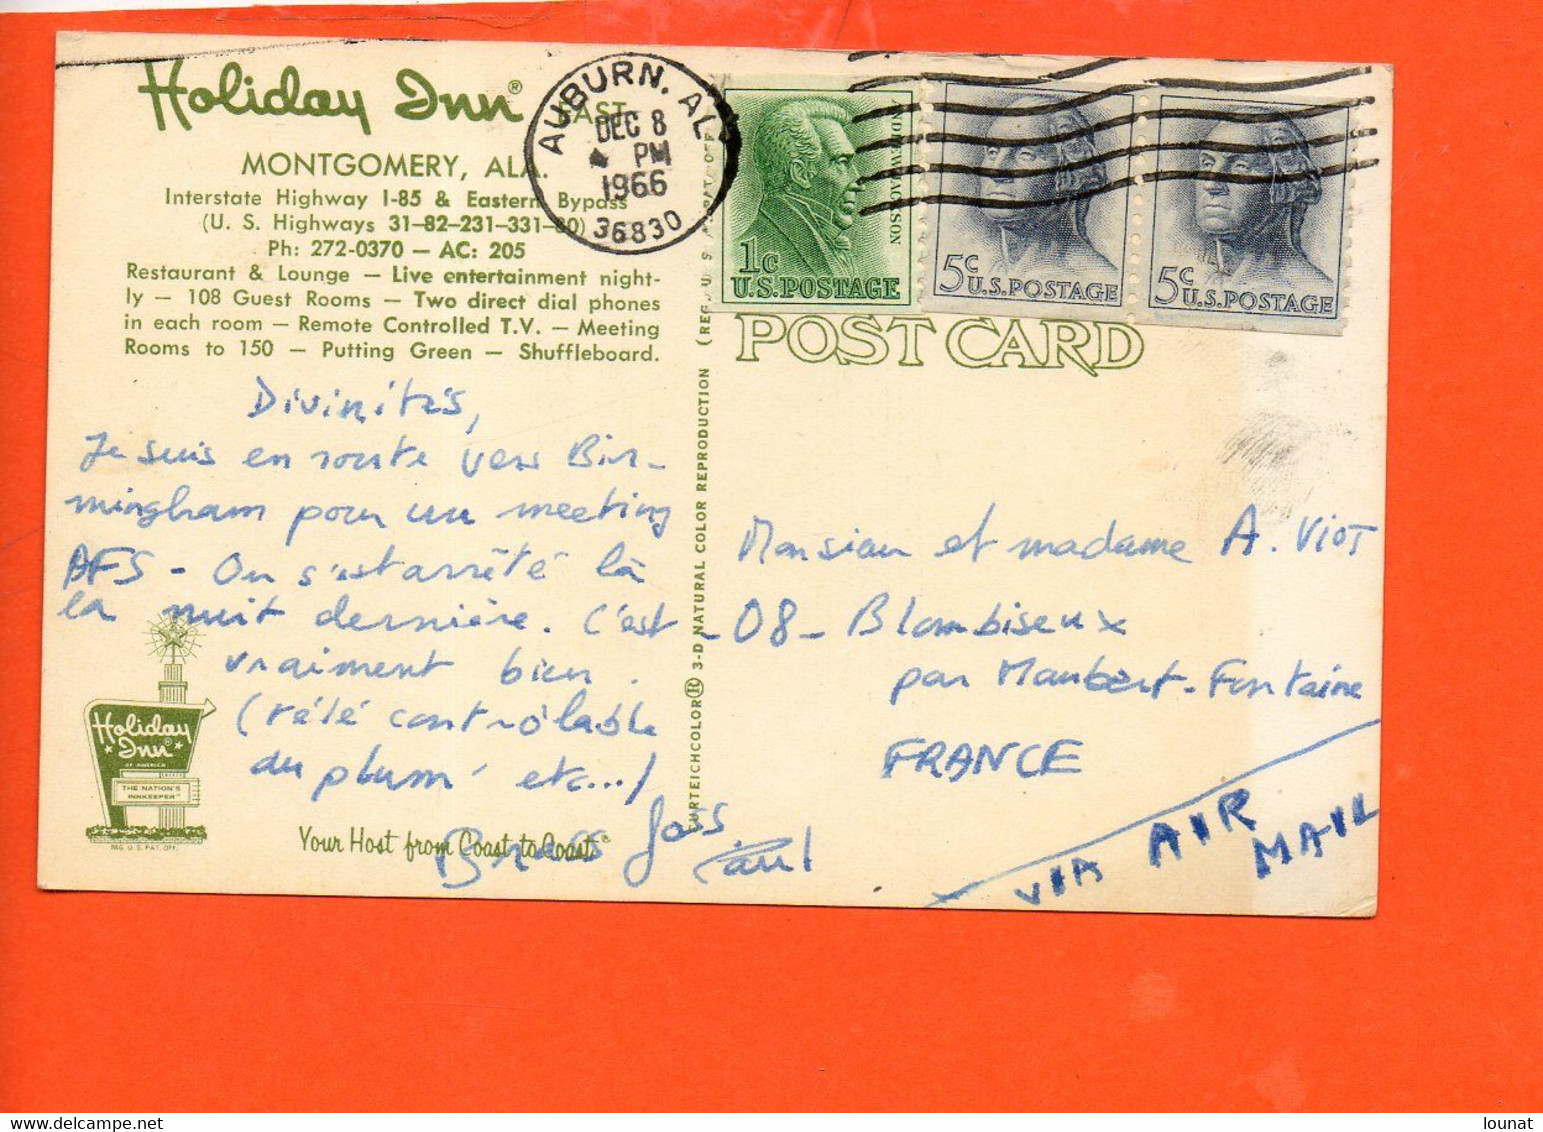 Holiday Inn® EAST
MONTGOMERY, ALA.
Interstate Highway I-85 & Eastern Bypass
(U. S. Highways 31-82-231-331-80)
Ph: 272-0370 — AC: 205
Restaurant & Lounge — Live entertainment night-
ly — 108 Guest Rooms — Two direct dial phones
in each room — Remote Controlled T.V. — Meeting
Rooms to 150 — Putting Green — Shuffleboard.
AUBURN, ALA
DEC 8
PM
1966
36830
ANDREW JACKSON
1c
U.S.POSTAGE
5c
U.S.POSTAGE
5c
U.S.POSTAGE
POST CARD
Divinités,
Je suis en route vers Bir-
mingham pour un meeting
AFS - On s'est arrêté là
la nuit dernière. C'est
vraiment bien.
(télé contrôlable
du plum' etc...)
Joss
Paul
CURTEICHCOLOR® 3-D NATURAL COLOR REPRODUCTION (REG. U.S. PAT. OFF.
Monsieur et madame A. VIOT
-08- Blombiseux
par Maubert-Fontaine
FRANCE
VIA AIR
MAIL
Holiday
Inn®
OF AMERICA
THE NATION'S
INNKEEPER
REG. U.S. PAT. OFF.
Your Host from Coast to Coast®
lounat
Delcampe.net